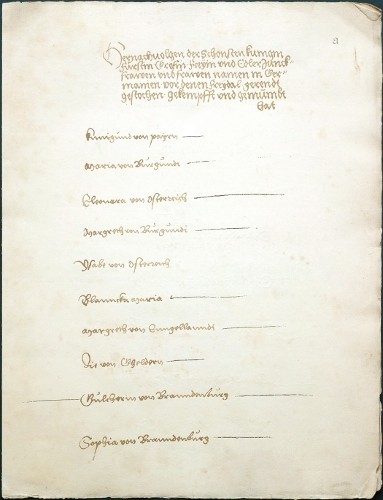 hernach volgen der schonsten kunigin
fursten Grefin freyin und Edler Junck-
frawen und frawen namen in Ger-
manien vor denen freydal gerendt
gestochen gekempfft und gemumt
hat
Kunigund von payrn
Maria von Burgundi
Eleonora von Osterreich
Margreth von Burgundi
Ysabe von Osterreich
Blanncka Maria
Margreth von Enngellanndt
Die von Gheldern
Wilhelm von Branndenburg
Sophia von Branndenburg